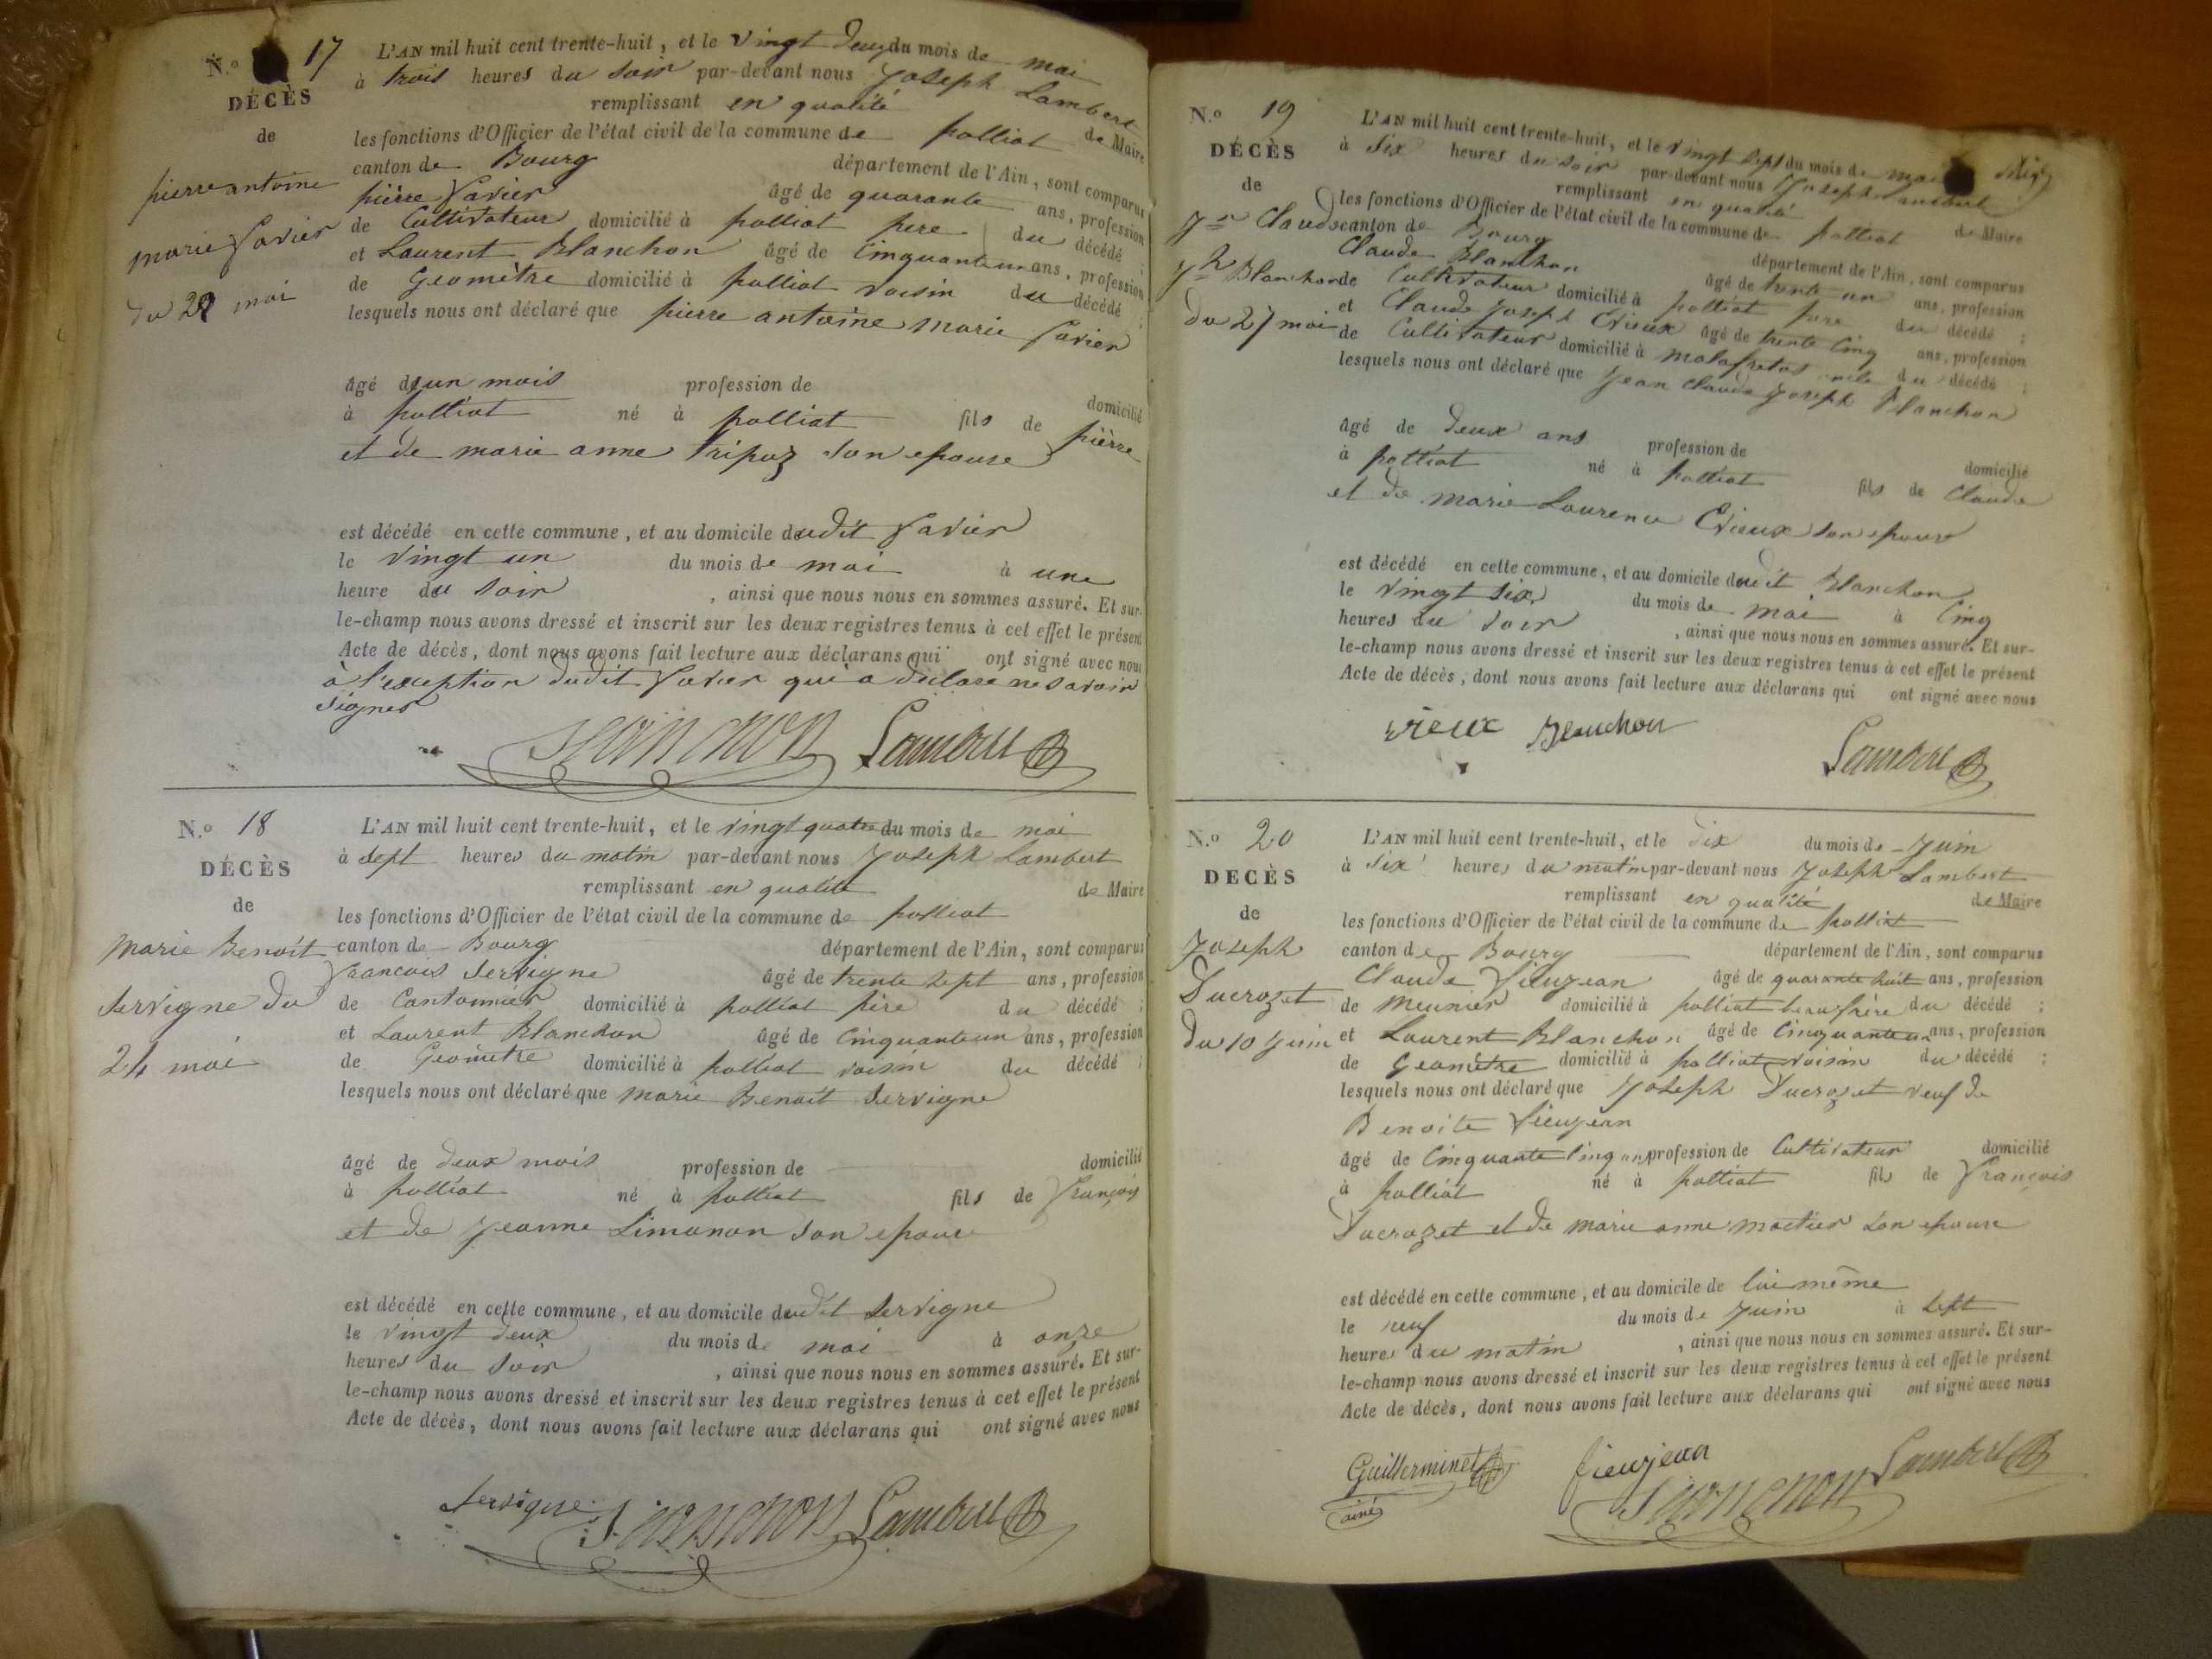 N.° 17
DÉCÈS
de
pierre antoine
marie Favier
du 22 mai
L'AN mil huit cent trente-huit, et le vingt deux du mois de mai
à trois heures du soir par-devant nous Joseph Lambert
remplissant en qualité de Maire
les fonctions d'Officier de l'état civil de la commune de polliat
canton de Bourg département de l'Ain, sont comparus
pierre Favier âgé de quarante ans, profession
de Cultivateur domicilié à polliat pere du décédé ;
et Laurent Blanchon âgé de Cinquante un ans, profession
de Geomètre domicilié à polliat voisin du décédé ;
lesquels nous ont déclaré que pierre antoine marie favier
âgé d'un mois profession de domicilié
à polliat né à polliat fils de pièrre
et de marie anne Tripoz son epouse
est décédé en cette commune, et au domicile dudit Favier
le vingt un du mois de mai à une
heure du soir , ainsi que nous nous en sommes assuré. Et sur-
le-champ nous avons dressé et inscrit sur les deux registres tenus à cet effet le présent
Acte de décès, dont nous avons fait lecture aux déclarans qui ont signé avec nous
à l'exception dudit Favier qui a déclaré ne savoir
signer
Blanchon Lambert
N.° 18
DÉCÈS
de
Marie Benoit
Servigne du
24 mai
L'AN mil huit cent trente-huit, et le vingt quatre du mois de mai
à sept heures du matin par-devant nous Joseph Lambert
remplissant en qualité de Maire
les fonctions d'Officier de l'état civil de la commune de polliat
canton de Bourg département de l'Ain, sont comparus
francois Servigne âgé de trente sept ans, profession
de Cantonnier domicilié à polliat père du décédé ;
et Laurent Blanchon âgé de Cinquante un ans, profession
de Geomètre domicilié à polliat voisin du décédé ;
lesquels nous ont déclaré que marie Benoit Servigne
âgé de deux mois profession de domicilié
à polliat né à polliat fils de François
et de Jeanne Limonon son epouse
est décédé en cette commune, et au domicile dudit Servigne
le vingt deux du mois de mai à onze
heures du soir , ainsi que nous nous en sommes assuré. Et sur-
le-champ nous avons dressé et inscrit sur les deux registres tenus à cet effet le présent
Acte de décès, dont nous avons fait lecture aux déclarans qui ont signé avec nous
Servigne Blanchon Lambert
N.° 19
DÉCÈS
de
Jn Claude
Jh Blanchon
du 27 mai
L'AN mil huit cent trente-huit, et le vingt sept du mois de mai
à six heures du soir par-devant nous Joseph Lambert
remplissant en qualité de Maire
les fonctions d'Officier de l'état civil de la commune de polliat
canton de Bourg département de l'Ain, sont comparus
Claude Blanchon âgé de trente un ans, profession
de Cultivateur domicilié à polliat pere du décédé ;
et Claude Joseph Evieux âgé de trente Cinq ans, profession
de Cultivateur domicilié à malafretas oncle du décédé ;
lesquels nous ont déclaré que Jean Claude Joseph Blanchon
âgé de deux ans profession de domicilié
à polliat né à polliat fils de Claude
et de marie Laurence Evieux son epouse
est décédé en cette commune, et au domicile dudit Blanchon
le vingt six du mois de mai à Cinq
heures du soir , ainsi que nous nous en sommes assuré. Et sur-
le-champ nous avons dressé et inscrit sur les deux registres tenus à cet effet le présent
Acte de décès, dont nous avons fait lecture aux déclarans qui ont signé avec nous
Evieux Blanchon
Lambert
N.° 20
DECÈS
de
Joseph
Ducrozet
du 10 Juin
L'AN mil huit cent trente-huit, et le dix du mois de Juin
à six heures du matin par-devant nous Joseph Lambert
remplissant en qualité de Maire
les fonctions d'Officier de l'état civil de la commune de polliat
canton de Bourg département de l'Ain, sont comparus
Claude Fieujean âgé de quarante huit ans, profession
de Meunier domicilié à polliat beau frère du décédé ;
et Laurent Blanchon âgé de Cinquante un ans, profession
de Geomètre domicilié à polliat voisin du décédé ;
lesquels nous ont déclaré que Joseph Ducrozet veuf de
Benoite Fieujean
âgé de Cinquante Cinq ans profession de Cultivateur domicilié
à polliat né à polliat fils de François
Ducrozet et de marie anne moctier son epouse
est décédé en cette commune, et au domicile de lui même
le neuf du mois de Juin à sept
heures du matin , ainsi que nous nous en sommes assuré. Et sur-
le-champ nous avons dressé et inscrit sur les deux registres tenus à cet effet le présent
Acte de décès, dont nous avons fait lecture aux déclarans qui ont signé avec nous
Guillerminet fieujean Lambert
ainé Blanchon